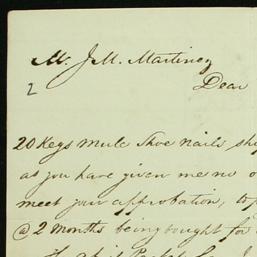 Mr. J M. Martinez
2
Dear
20 Kegs Mule Shoe Nails
as you have given me no
meet your approbation, to
@ 2 months being bought for